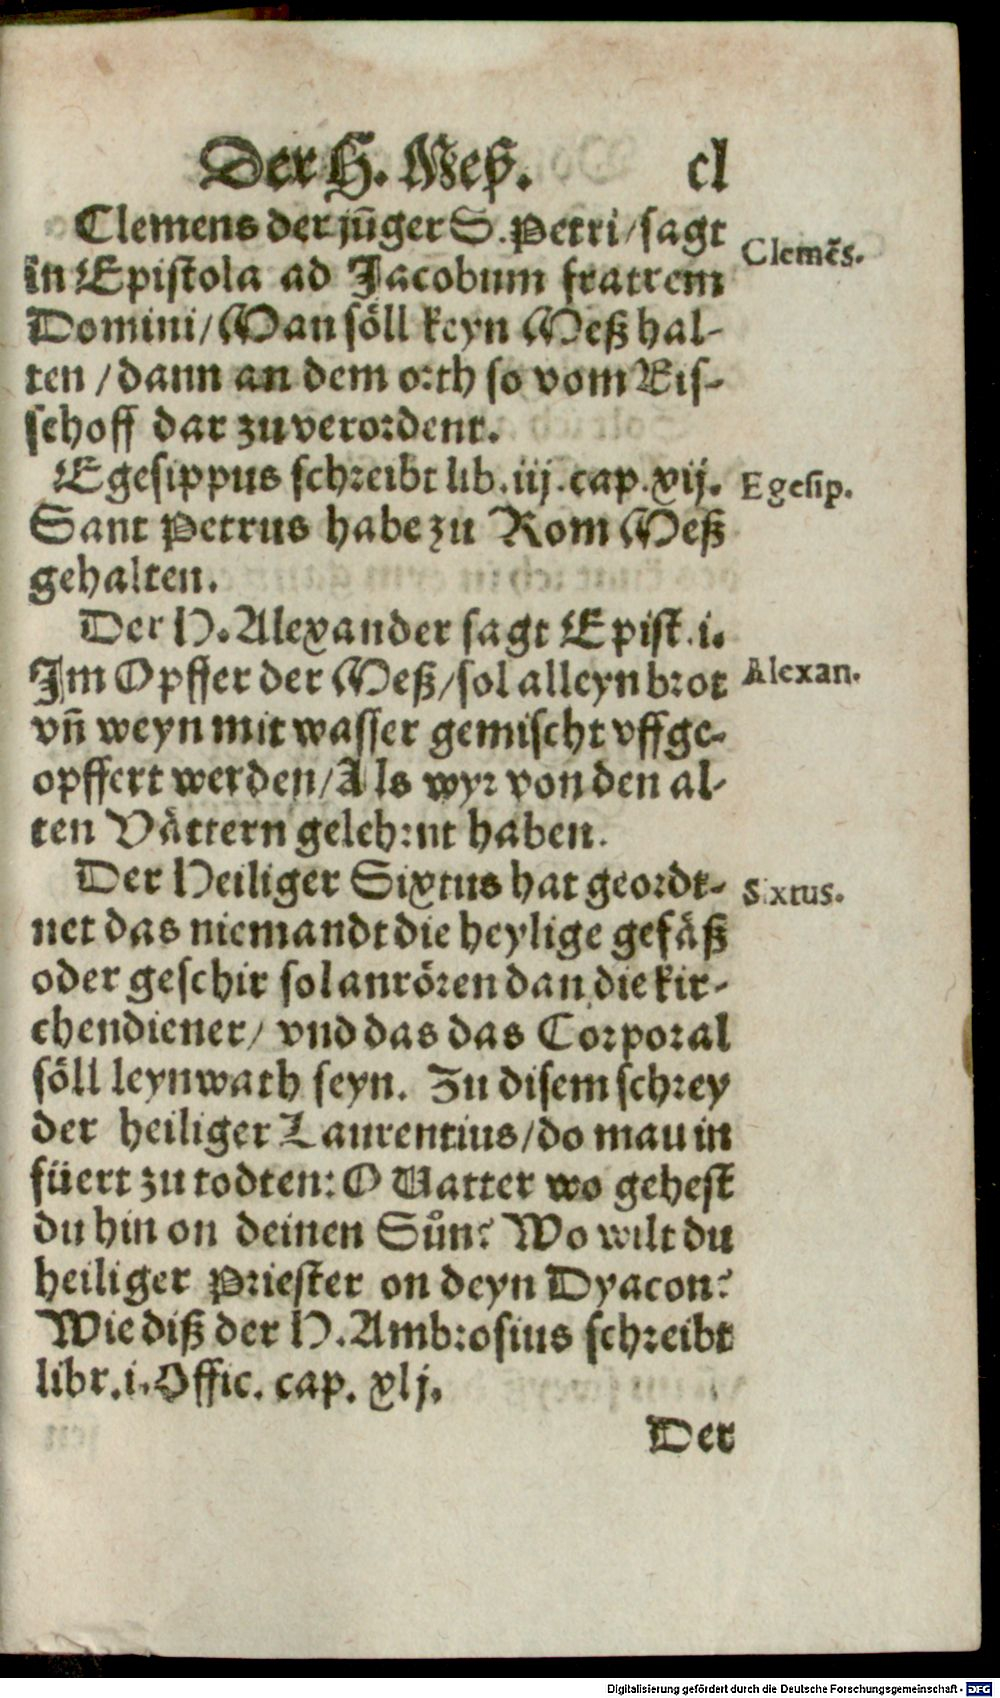 Der H. Meß. cl
Clemens der jūger S. Petri/sagt
in Epistola ad Jacobum fratrem
Domini/Man söll keyn Meß hal-
ten/dann an dem orth so vom Bis-
schoff dar zu verordent.
Clemēs.
Egesippus schreibt lib. iij. cap. xij.
Sant Petrus habe zu Rom Meß
gehalten.
Egesip.
Der H. Alexander sagt Epist. i.
Im Opffer der Meß/sol alleyn brot
vn̄ weyn mit wasser gemischt vffge-
opffert werden/Als wyr von den al-
ten Vättern gelehrnt haben.
Alexan.
Der Heiliger Sixtus hat geordt-
net das niemandt die heylige gefäß
oder geschir sol anrören dan die kir-
chendiener/ vnd das das Corporal
söll leynwath seyn. Zu disem schrey
der heiliger Laurentius/do mau in
füert zu todten: O Vatter wo gehest
du hin on deinen Sůn? Wo wilt du
heiliger Priester on deyn Dyacon?
Wie diß der H. Ambrosius schreibt
libr. i. Offic. cap. xlj.
Sixtus.
Der
Digitalisierung gefördert durch die Deutsche Forschungsgemeinschaft - DFG